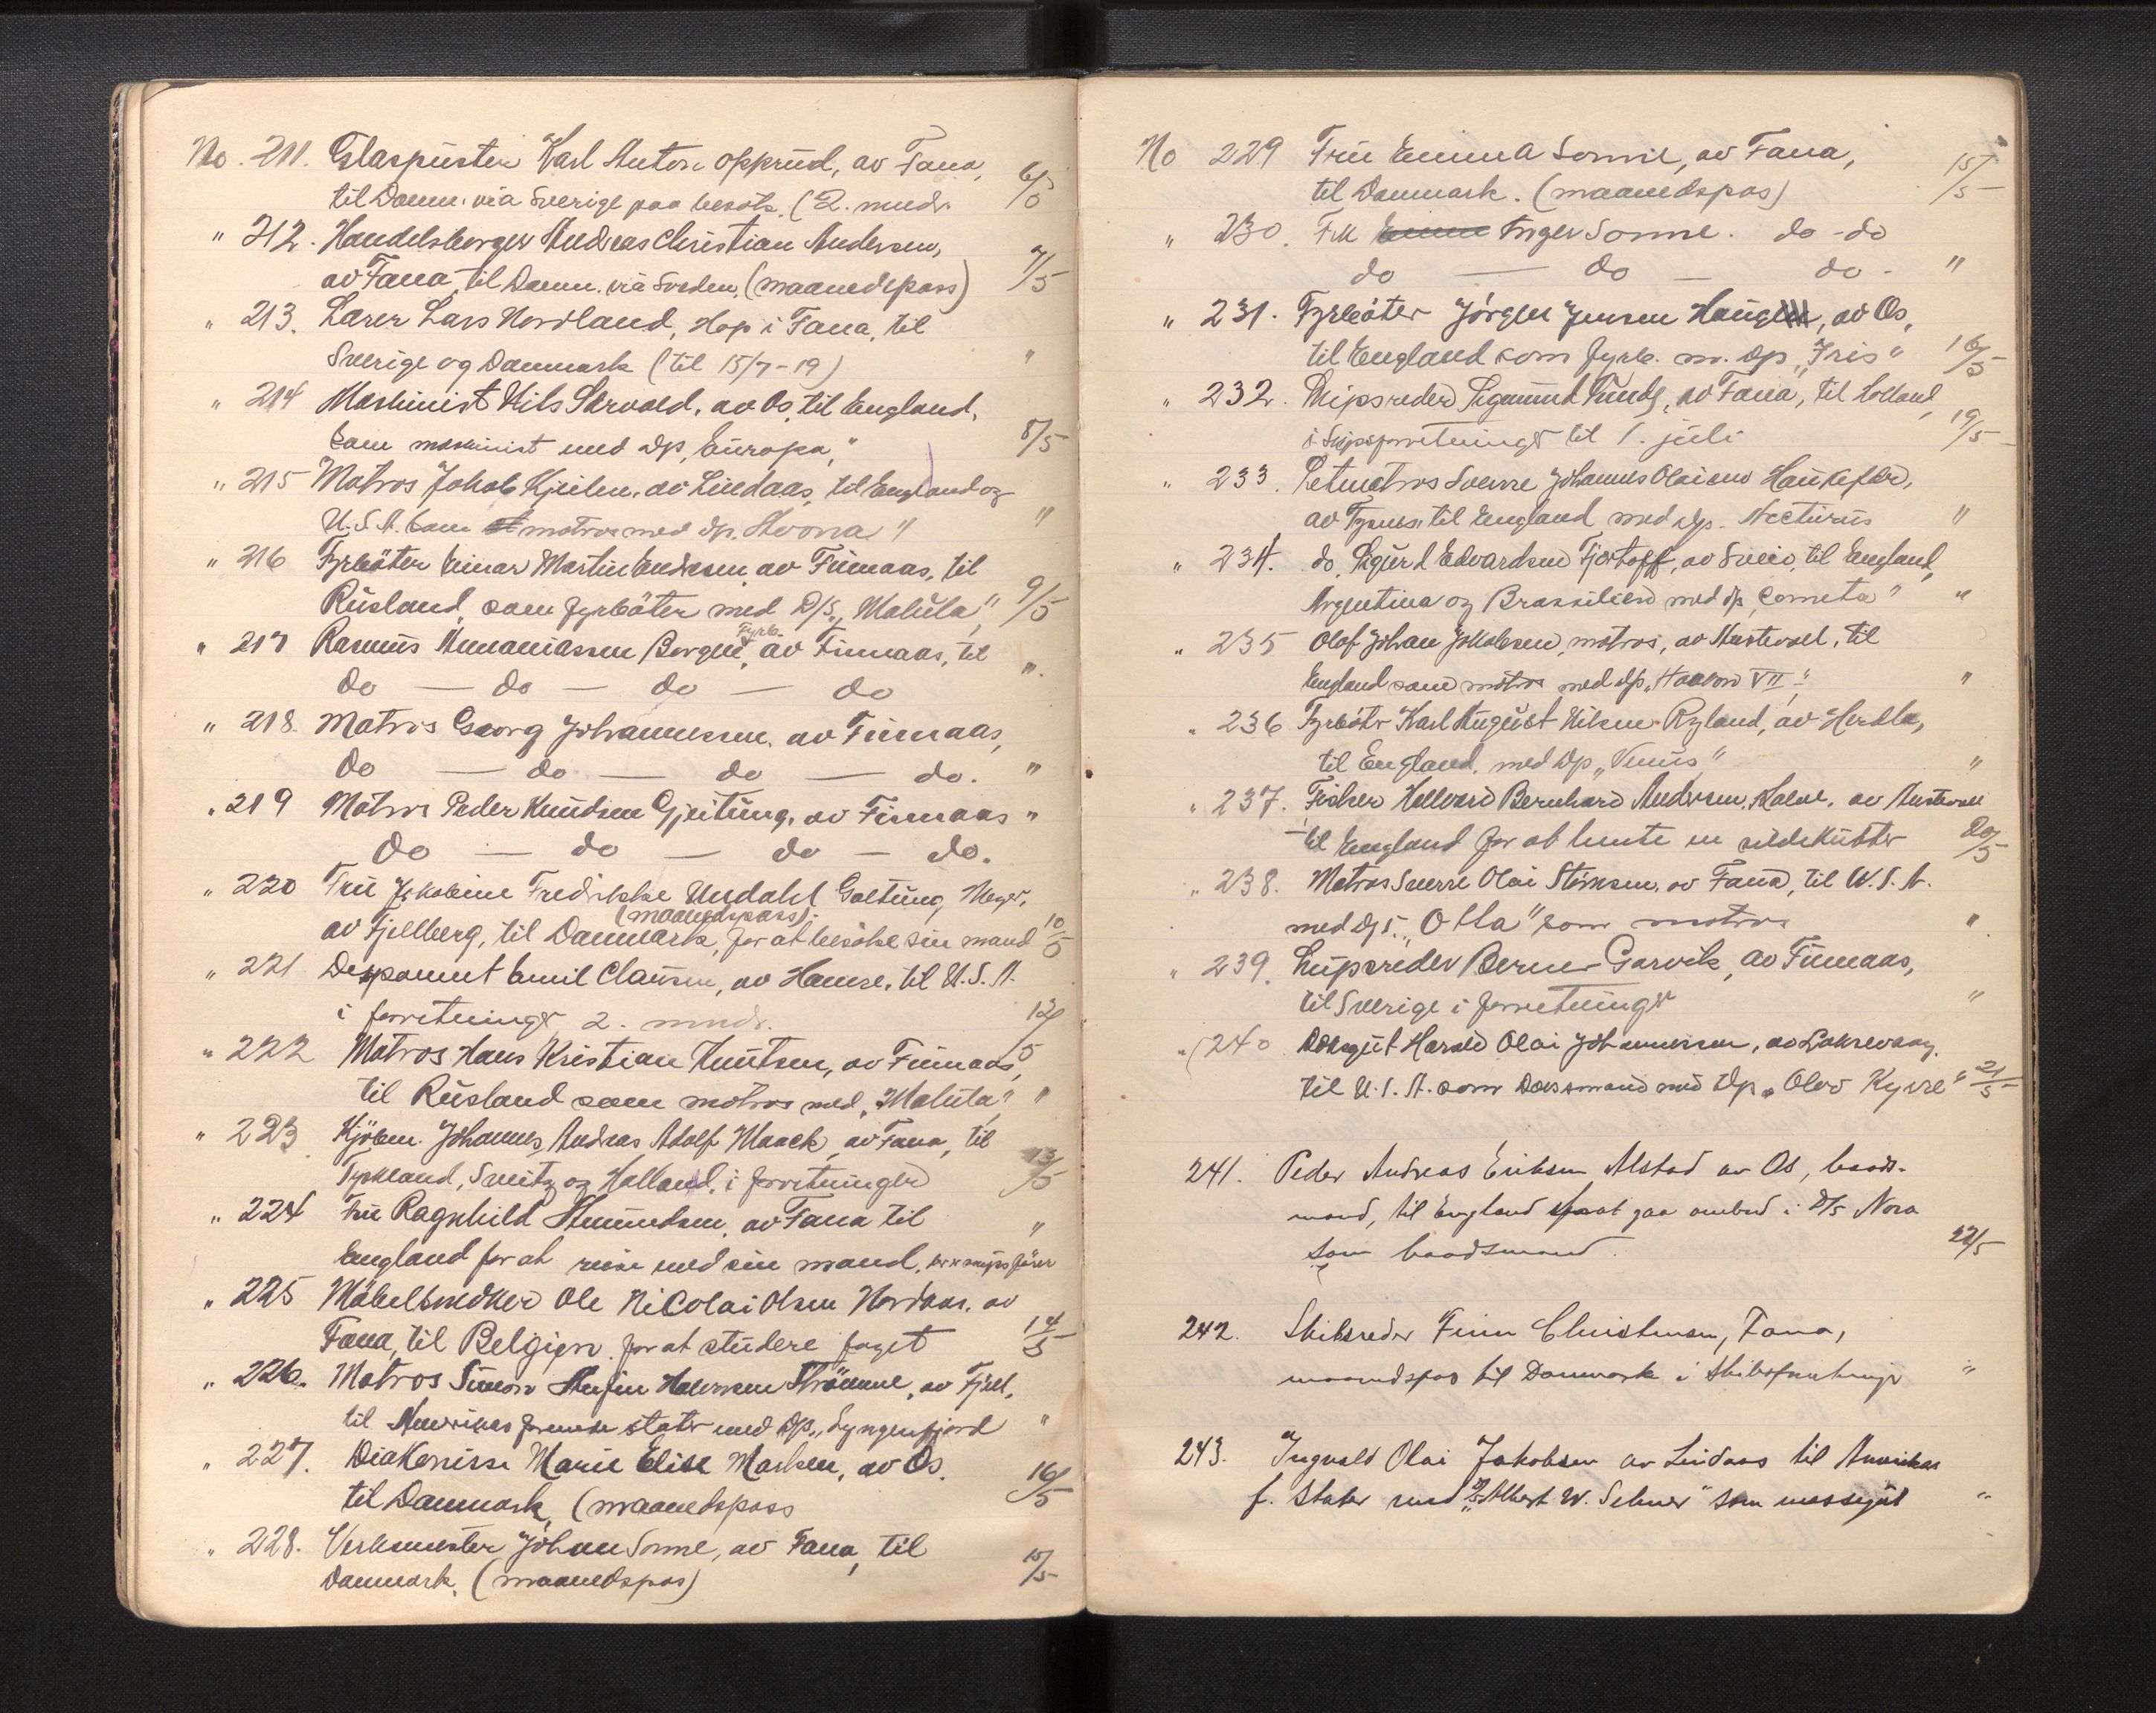 No. 211. Glaspuster Karl Anton Opprud, av Fana, 6/5
til Danm. via Sverige paa besök. (2. mndr.
" 212. Handelsborger Andreas Christian Andersen,
av Fana, til Danm. via Sveden. (maanedspass) 7/5
" 213. Lærer Lars Nordland, Hop i Fana, til
Sverige og Danmark (til 15/7-19) "
" 214 Maskinist Nils Skrvold, av Os, til England,
som maskinist med Dp, Europa," 8/5
" 215 Matros Jakob Kjeilen, av Lindaas, til England og
U.S.A. som matros med Dp. Hvona" "
" 216 Fyrböter Einar Martin Endresen, av Finnaas, til
Rusland, som fyrböter med D/s, "Maluta," 9/5
" 217 Rasmus Annaniassen Borgen, Fyrb. av Finnaas, til
do — do — do — do ".
" 218. Matros Georg Johannessen, av Finnaas,
do — do — do — do. "
" 219 Matros Peder Knudsen Gjeitung, av Finnaas "
do — do — do — do.
" 220 Fru Jakobine Fredrikke Undahl Galtung, Meyer,
(maanedspass).
av Fjelberg, til Danmark, for at besöke sin mand 10/5
" 221 Disponent Emil Clausen, av Hamre, til U.S.A.
i forretninger, 2. mndr. 12/5
" 222 Matros Hans Kristian Knutsen, av Finnaas,
til Rusland som matros med "Maluta" "
" 223 Kjöbm. Johannes Andreas Adolf Maack, av Fana, til
Tyskland, Sveitz og Holland, i forretninger 13/5
" 224 Fru Ragnhild Amundsen, av Fana til "
England for at reise med sin mand, som er skipsförer
" 225 Möbelsnedker Ole Nicolai Olsen Nordaas, av
Fana, til Belgien for at studere faget 14/5
" 226. Matros Simon Steffen Halvorsen Strömme, av Fjell,
til Amerikas forenede stater med Dp., Lyngenfjord "
" 227. Diakonisse Marie Elise Madsen, av Os.
til Danmark, (maanedspass 16/5
" 228. Verksmester Johan Sonne, av Fana, til
Danmark. (maanedspas) 15/5
No 229 Fru Emma Sonne, av Fana,
til Danmark. (maanedspas) 15/5
" 230. Frk Inger Sonne. do - do
do — do — do - "
" 231. Fyrböter Jörgen Jensen Haugen, av Os,
til England som fyrb. m. Dp "Iris" 16/5
" 232. Skipsreder Sigmund Lunde, av Fana, til Holland,
i Skipsforretninger til 1. juli 19/5
" 233. Letmatros Sverre Johannes Olaisen Haukefær,
av Tysnes, til England med Dp. Necturus "
" 234. do, Sigurd Edvardsen Fjortoft, av Sveio, til England,
Argentina og Brassilien med Dp, Cometa" "
" 235 Olaf Johan Jakobsen, matros, av Austevoll, til
England som matros med Dp, "Haakon VII" "
" 236 Fyrböter Karl August Nilsen Ryland, av Herdla,
til England, med Dp "Venus" "
" 237. Fisker Hallvard Bernhard Andersen, Kalve, av Austevoll
til England for at hente en sildekutter 20/5
" 238. Matros Sverre Olai Störksen, av Fana, til U.S.A.
med D/s., Otta" som matros "
" 239. Skipsreder Berner Garvik, av Finnaas,
til Sverige i forretninger "
" 240 Dæksgut Harald Olai Johannessen, av Laksevaag,
til U.S.A. som dæksmand med Dp "Olav Kyrre" 21/5
241. Peder Andreas Eriksen Alstad av Os, baads-
mand, til England for at gaa ombord i D/S Nora
som baadsmand. 22/5
242. Skibsreder Finn Christensen, Fana,
maanedspas til Danmark i Skibsforretninger "
243. Ingvald Olai Jakobsen av Lindaas til Amerikas
f. Stater med D/S "Albert W. Selmer" som messegut "